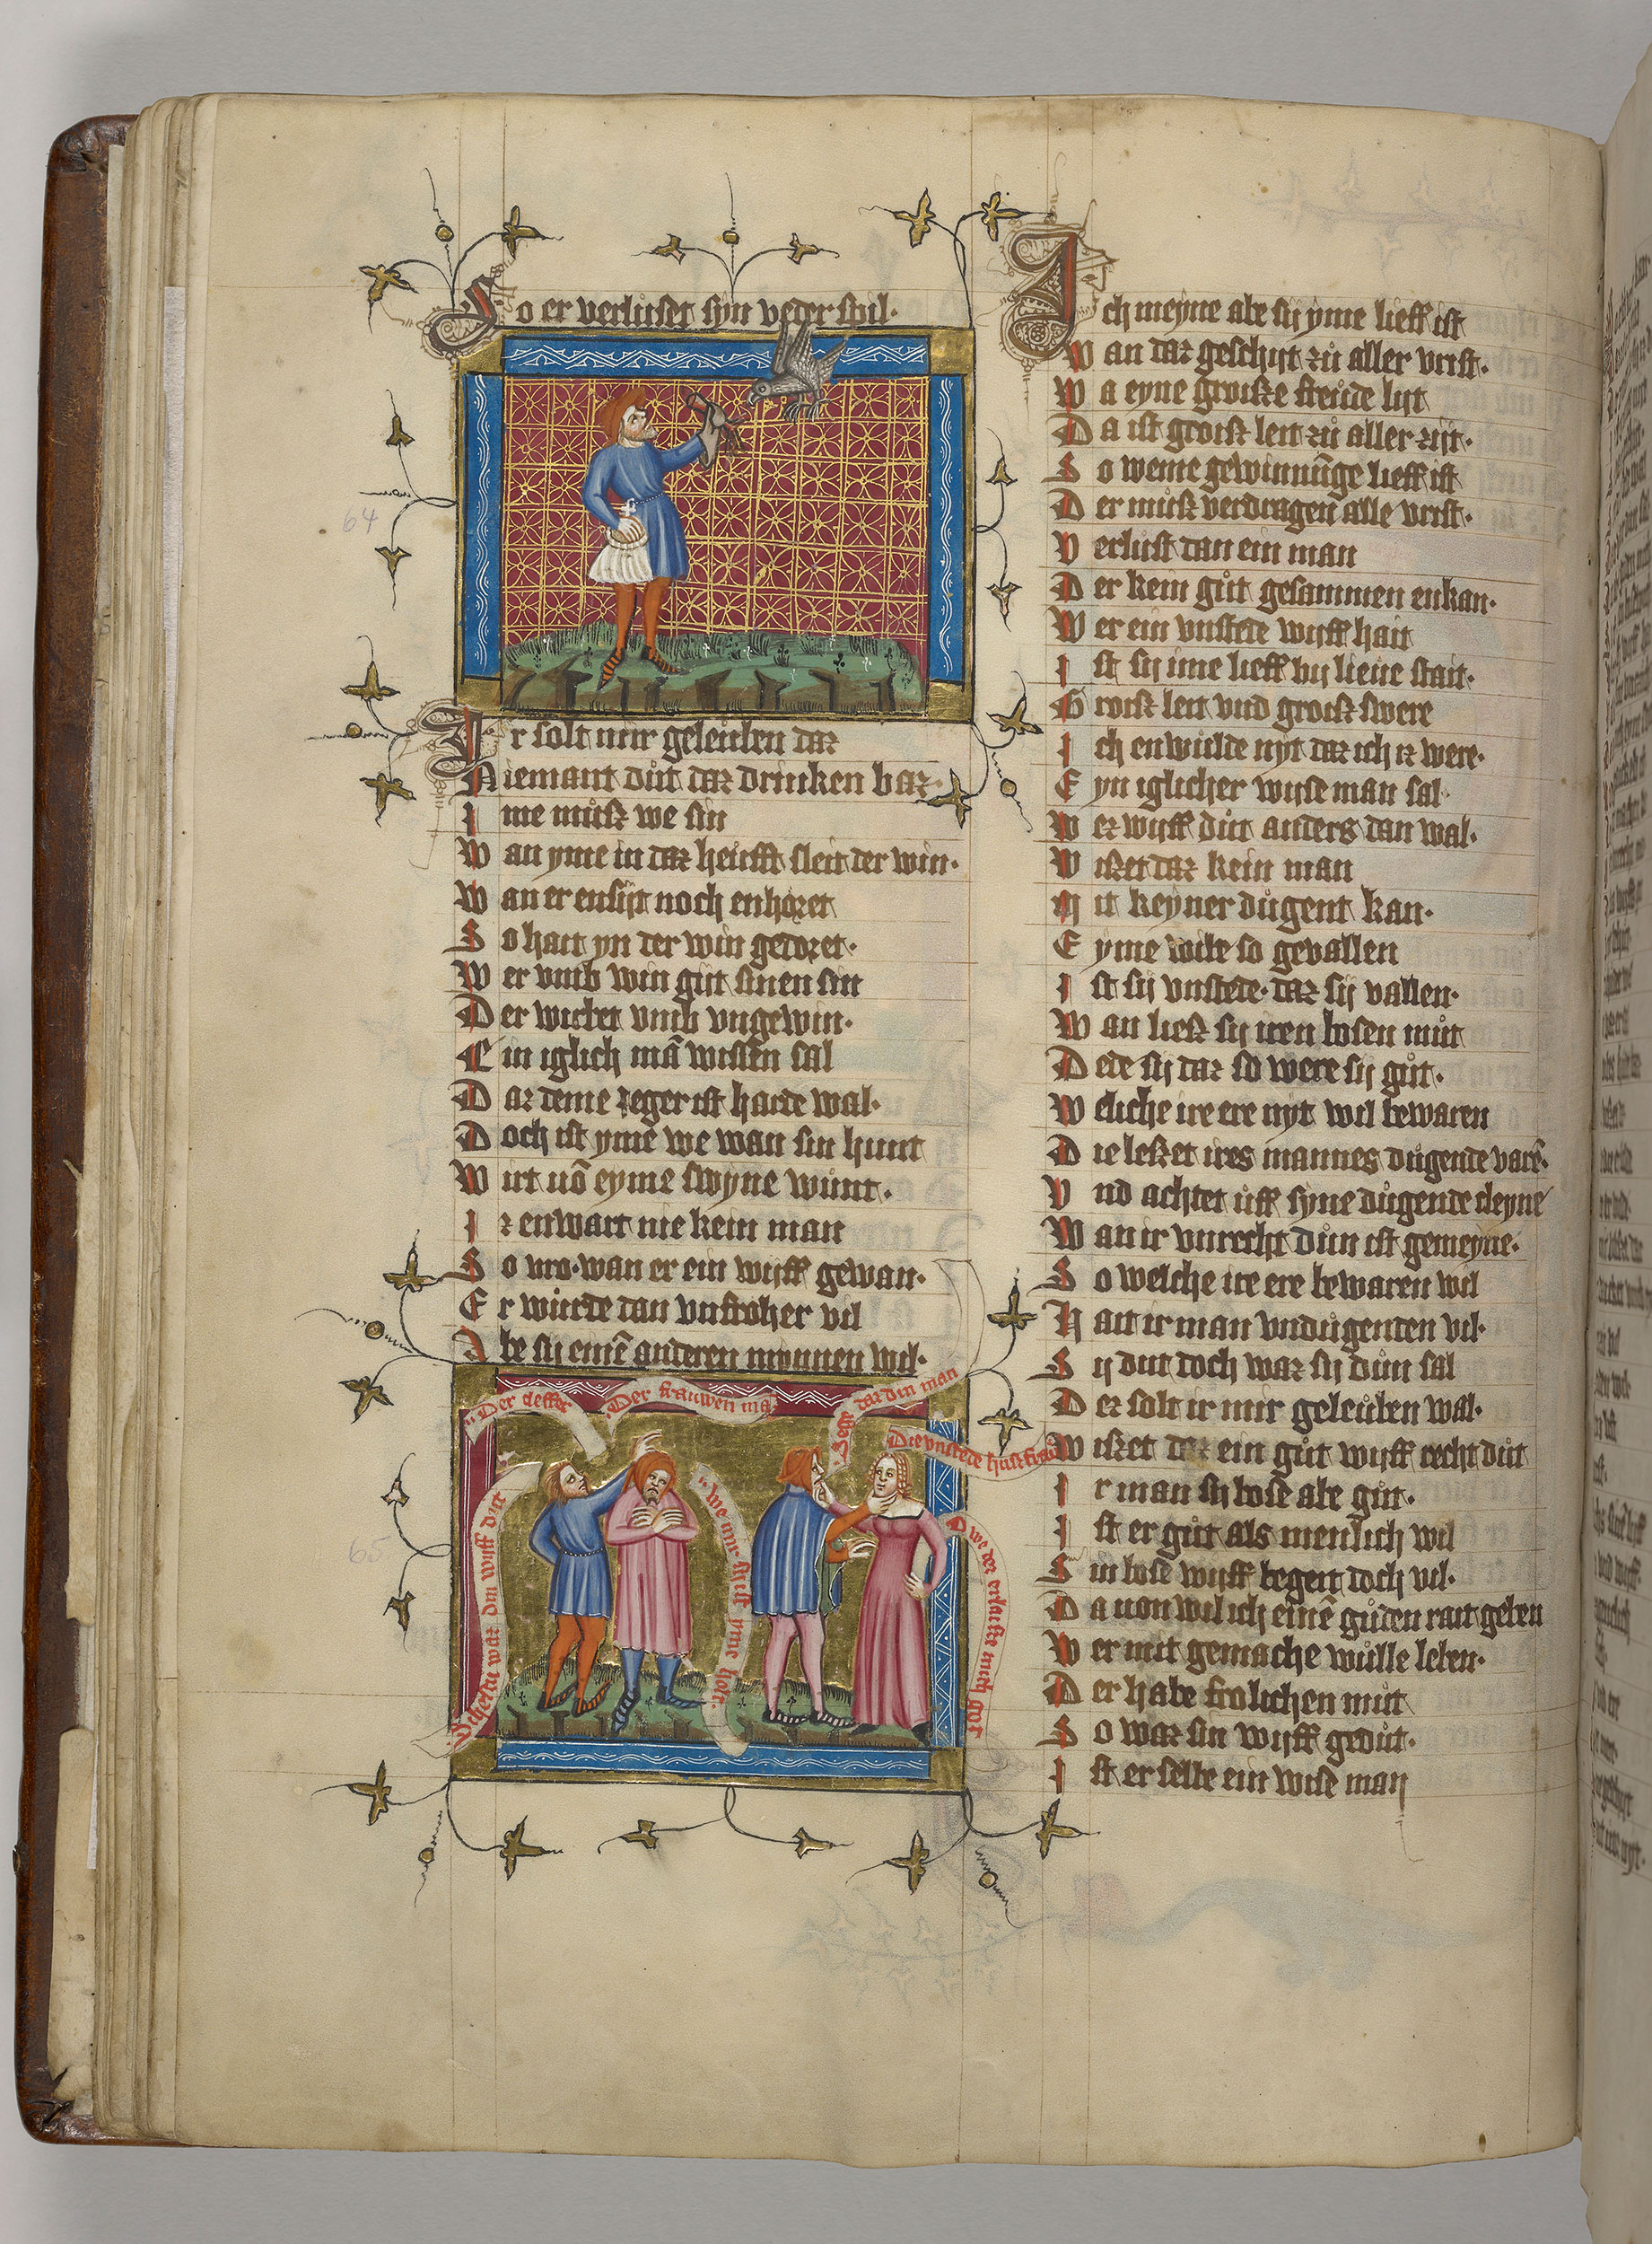 So er verluset syn veder spil·
Ir solt mir geleuben daz
Niemant důt daz drinken baz·
Ime můß we sin
Wan yme in daz heufft sleit der win·
Wan er ensiht noch enhoret
So hait yn der win gedoret·
Wer vmb win git sinen sin
Der wirbet vmb vngewin·
Ein iglich mā wissen sal
Daz deme jeger ist harte wal·
Doch ist yme we wan sin hunt
Wirt uō eyme swyne wunt·
Iz enwart nie kein man
So vro· wan er ein wyff gewan·
Er wurde dan vnfroher vil
Abe sy eimē anderen mynnen wil·
Der cleffer
Der frauwen mā
Sehestu waz din wyff dut
We mir· sy ist yme holt
Sehe daz din man
Die vnstede husfrau
O we der erlaste mich got
Ich meyne abe sy yme lieff ist
Wan daz geschyt zů aller vrist·
Wa eyne groiße freude lyt
Da ist groiß leit zů aller zyt·
So weme gewinnūge lieff ist
Der můß verdragen alle vrist·
Verlust dan ein man
Der kein gůt gesammen enkan·
Wer ein vnstede wyff hait
Ist sy ime lieff by lieue stait·
Groiß leit vnd groiß swere
Ich enwulde nyt daz ich iz were·
Eyn iglicher wyse man sal
Wez wyff dut anders dan wal·
Wißet daz kein man
Mit keyner dugent kan·
Eyme wibe so gevallen
Ist sy vnstede· daz sy vallen·
Wan ließ sy iren bosen můt
Dede sy daz so were sy gůt·
Weliche ire ere nyt wil bewaren
Die leßet ires mannes dugende varē·
Vnd achtet uff syne dugende cleyne
Wan ir vnrecht dun ist gemeyne·
So welche ire ere bewaren wil
Hait ir man vndugenden vil·
Sy dut doch waz sy dun sal
Dez solt ir mir geleuben wal·
Wißet daz ein gůt wyff recht dut
Ir man sy bose abe gut·
Ist er gůt als menlich wil
Sin bose wyff begert doch vil·
Da uon wil ich einē guden rait geben
Wer mit gemache wulle leben·
Der habe frolichen mut
So waz sin wyff gedut·
Ist er selbe ein wise man
64
65